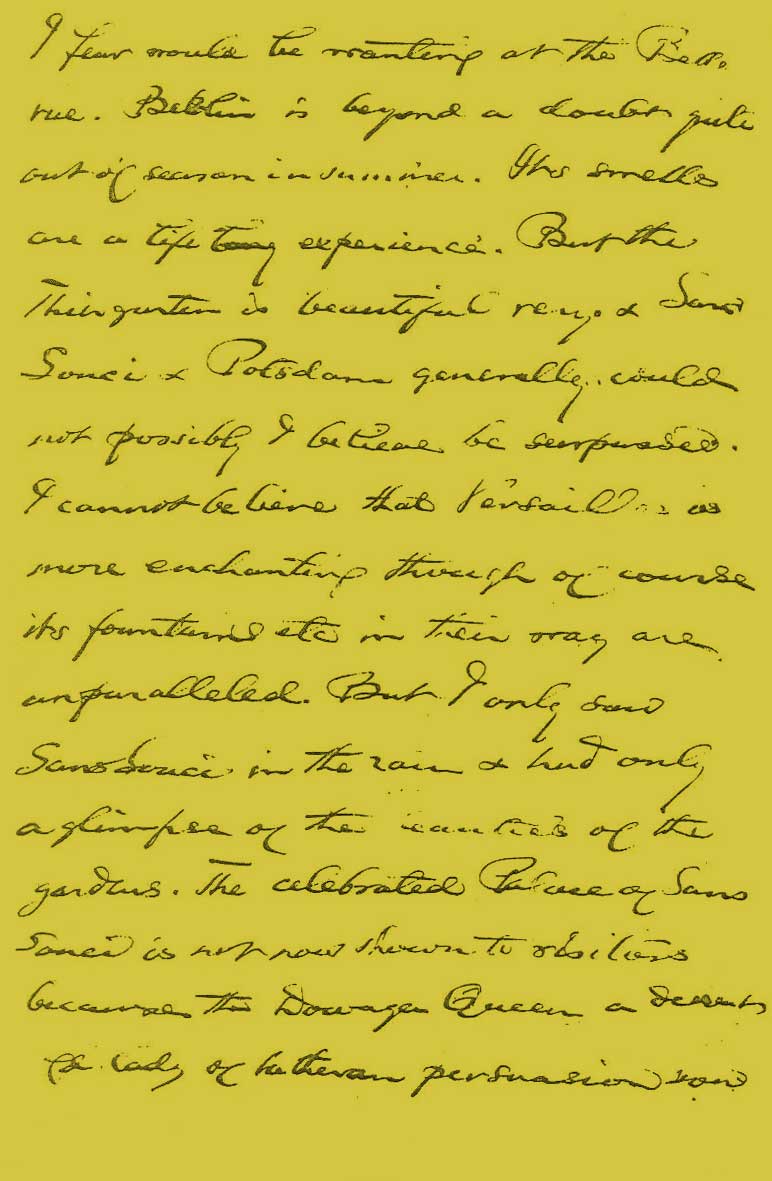 I fear would be wanting at the Belle
vue. Berlin is beyond a doubt quite
out of season in summer. Its smells
are a life long experience. But the
Thiergarten is beautiful very. & Sans
Souci & Potsdam generally could
not possibly I believe be surpassed.
I cannot believe that Versailles is
more enchanting though of course
its fountains etc in their way are
unparalleled. But I only saw
Sans Souci in the rain & had only
a glimpse of the beauties of the
gardens. The celebrated Palace of Sans
Souci is not now shown to visitors
because the Dowager Queen a
lady of Lutheran persuasion now